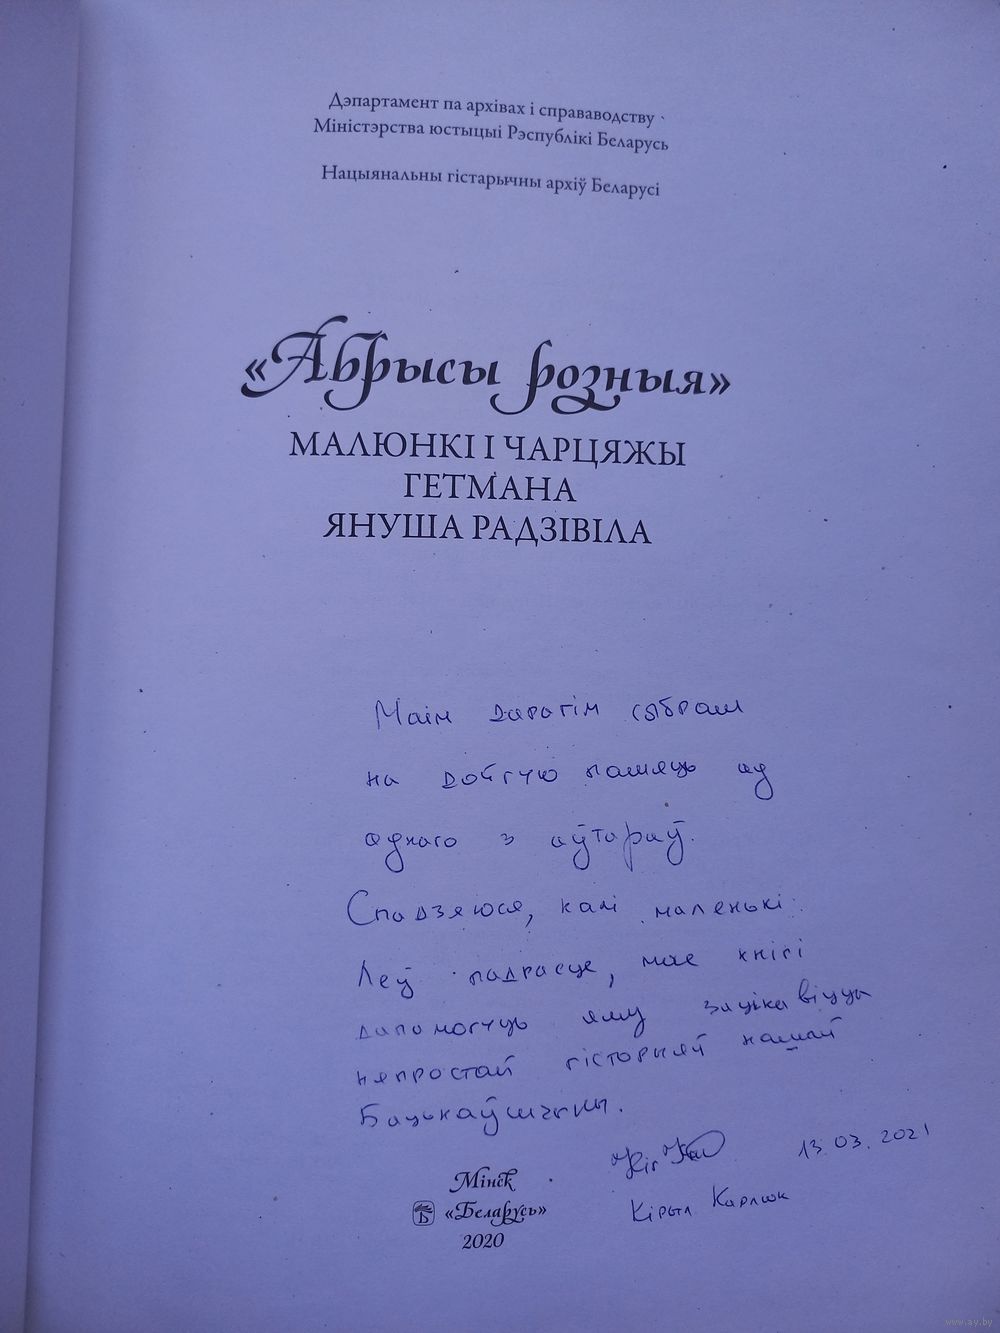 Дэпартамент па архівах і справаводству
Міністэрства юстыцыі Рэспублікі Беларусь
Нацыянальны гістарычны архіў Беларусі
«Абрысы розныя»
МАЛЮНКІ І ЧАРЦЯЖЫ
ГЕТМАНА
ЯНУША РАДЗІВІЛА
Маім дарагім сябрам
на доўгую памяць ад
аднаго з аўтараў.
Спадзяюся, калі маленькі
Леў падрасце, мае кнігі
дапамогуць яму зацікавіцца
няпростай гісторыяй нашай
Бацькаўшчыны.
13.03.2021
Кірыл Карлюк
Мінск
«Беларусь»
2020
www.ay.by